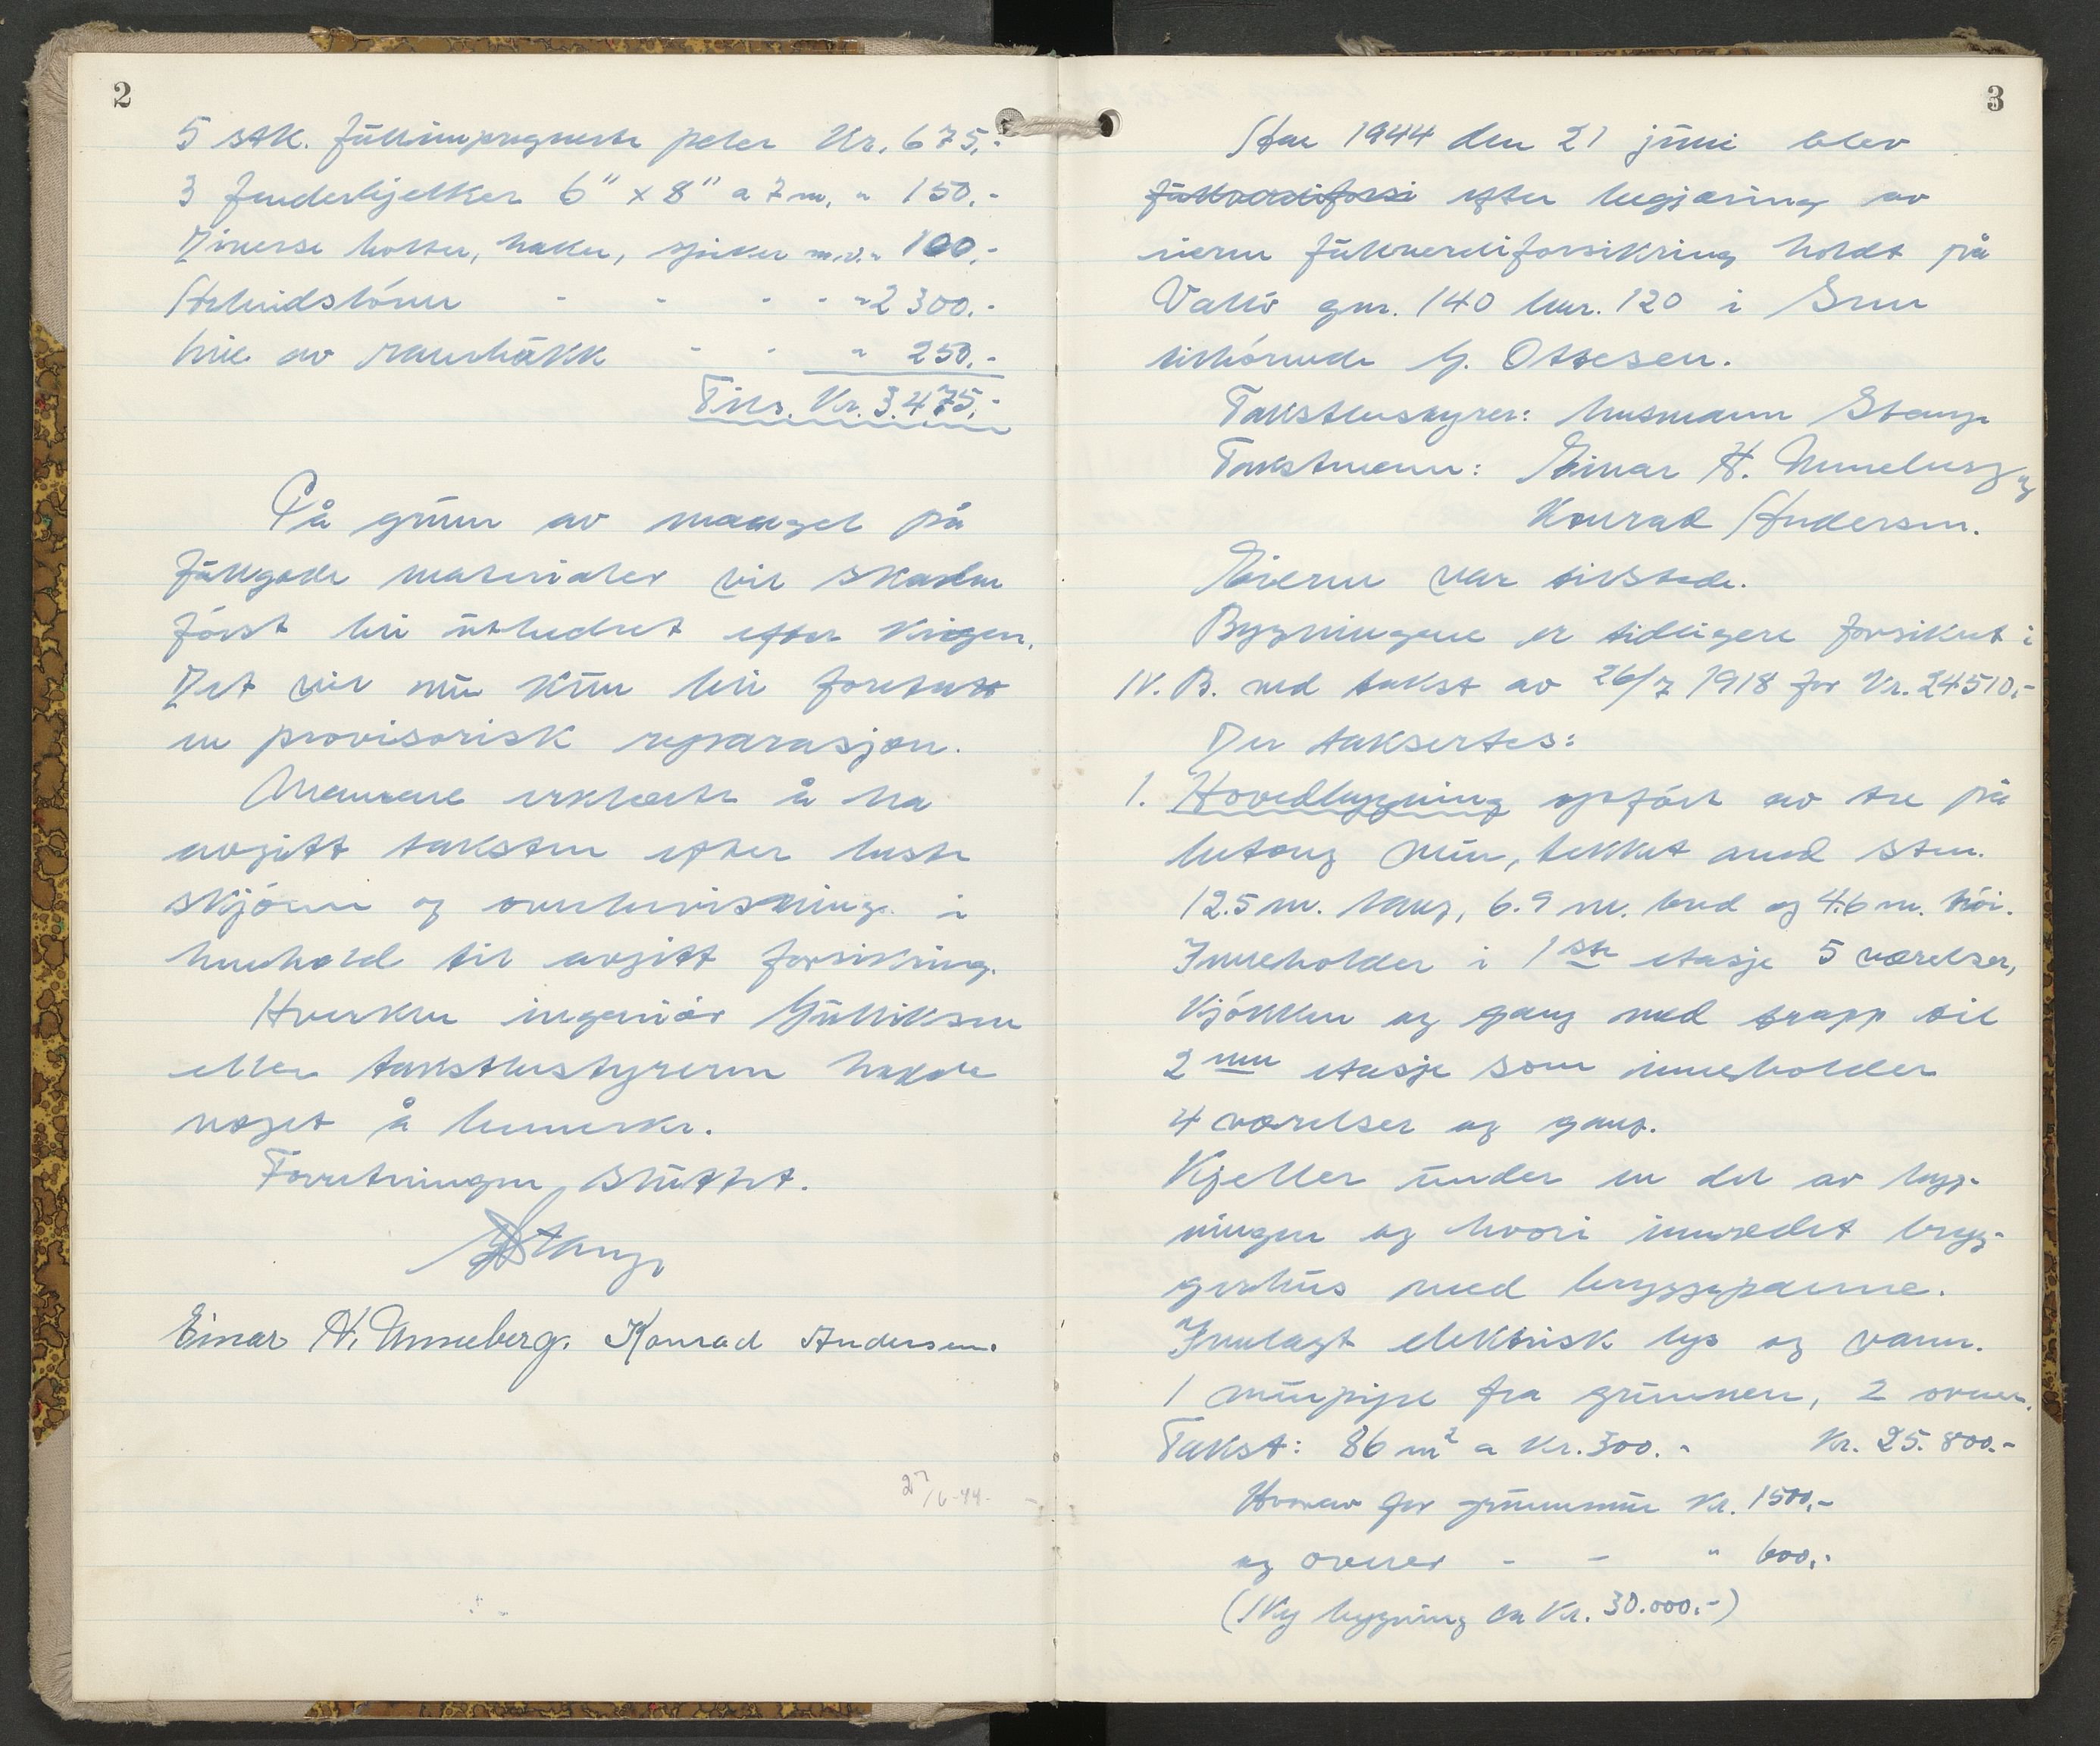 2
5 stk. fullimpregnerte peler Kr. 675,-
3 fenderbjelker 6" x 8" a 7 m. " 150.-
Diverse bolter, haker, spiker m.v. " 100,-
Arbeidslönn - - - - " 2300.-
leie av rambukk - - " 250.-
Tils. Kr. 3.475,-
På grunn av mangel på
fullgode materialer vil skaden
först bli utbedret efter krigen.
Det vil nu kun bli foretatt
en provisorisk reparasjon.
Mennene erklærte å ha
avgitt taksten efter beste
skjönn og overbevisning i
henhold til avgitt forsikring.
Hverken ingeniör Gulliksen
eller takstbestyreren hadde
noget å bemerke.
Forretningen sluttet.
Stang
Einar H. Unneberg. Konrad Andersen.
27/6-44.
3
Aar 1944 den 21 juni blev
fullverdiforsi efter begjæring av
eieren fullverdiforsikring holdt på
Vallö gnr. 140 bnr. 120 i Sem
tilhörende G. Ottesen.
Takstbestyrer: lensmann Stang
Takstmenn: Einar H. Unneberg og
Konrad Andersen.
Eieren var tilstede.
Bygningene er tidligere forsikret i
N. B. ved takst av 26/7 1918 for Kr. 24510,-
Der taksertes:
1. Hovedbygning opfört av tre på
betong mur, tekket med sten.
12.5 m. lang, 6.9 m. bred og 4.6 m. höi.
Inneholder i 1ste etasje 5 værelser,
kjökken og gang med trapp til
2nen etasje som inneholder
4 værelser og gang.
Kjeller under en del av byg-
ningen og hvori innredet bryg-
gerhus med bryggepanne.
Innlagt elektrisk lys og vann.
1 murpipe fra grunnen, 2 ovner.
Takst: 86 m² a Kr. 300.- Kr. 25.800.-
Hvorav for grunnmur Kr. 1500,-
og ovner - - " 600,-
(Ny bygning ca Kr. 30.000,-)